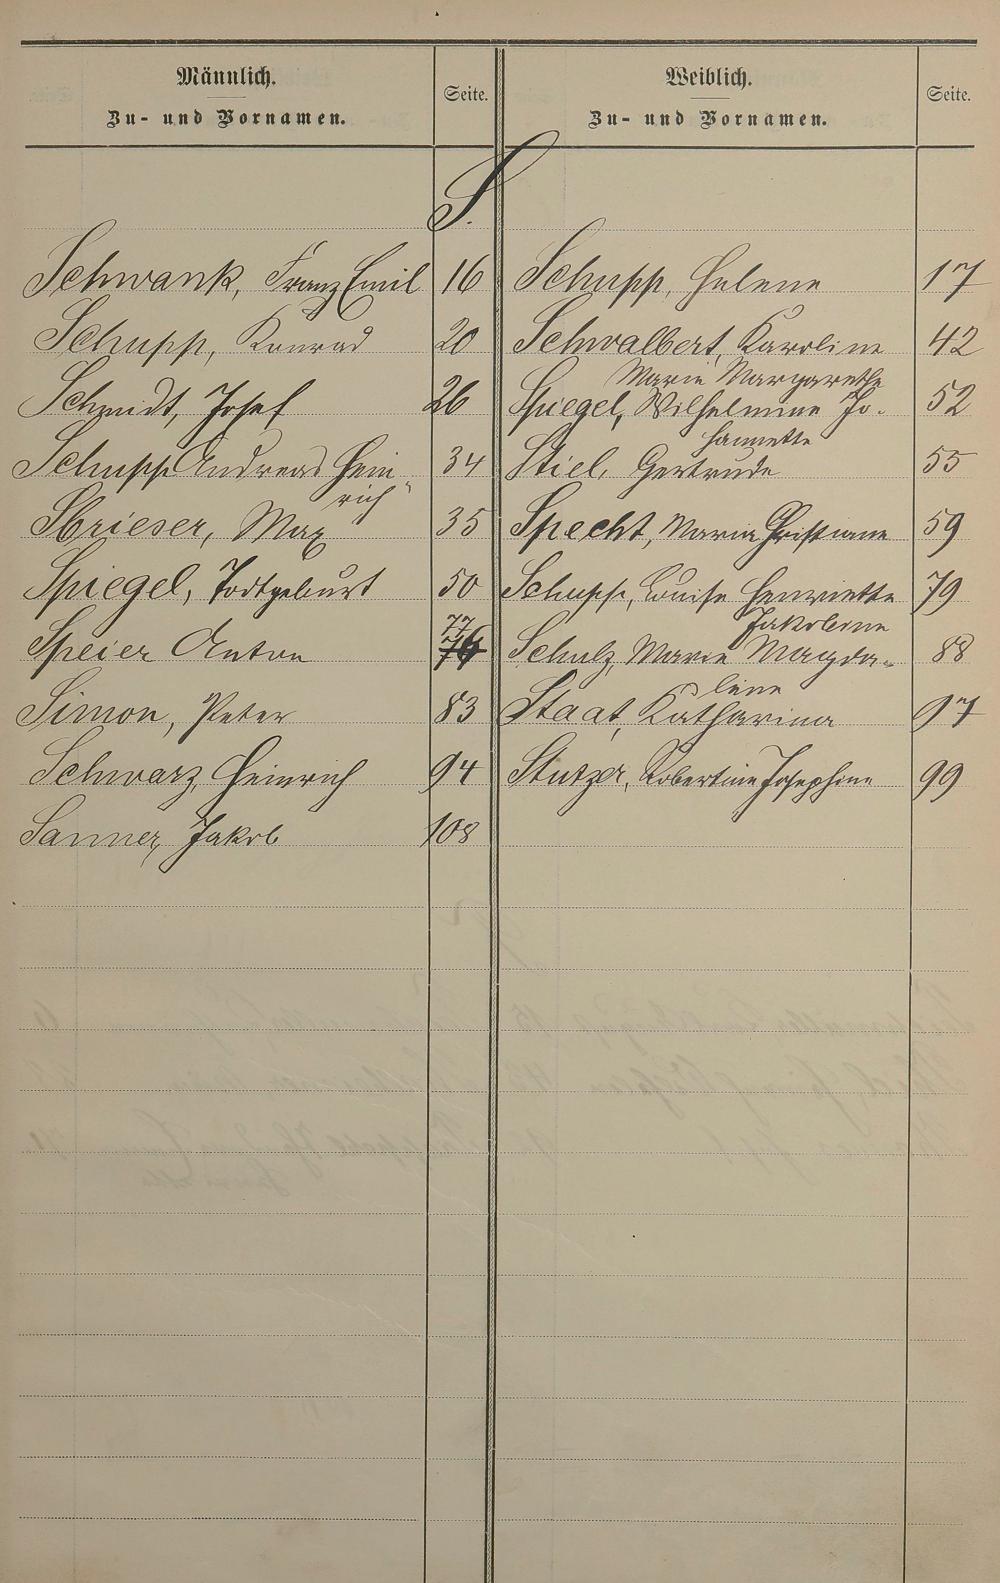 Männlich.
Zu- und Vornamen.
Seite.
Weiblich.
Zu- und Vornamen.
Seite.
S.
Schwank, Franz Emil 16
Schupp, Konrad 20
Schmidt, Josef 26
Schupp Andreas Hein-
rich 34
Sbrieser, Max 35
Spiegel, Todtgeburt 50
Speier Anton 77 76
Simon, Peter 83
Schwarz, Heinrich 94
Sanner, Jakob 108
Schupp, Helene 17
Schwalbert, Karoline 42
Marie Margarethe
Spiegel, Wilhelmine Jo- 52
hannette
Stiel, Gertrude 55
Specht, Maria Christiane 59
Schupp, Louise Henriette 79
Jakobine
Schulz, Marie Magda- 88
lene
Staat, Katharina 97
Stutzer, Robertine Josephine 99